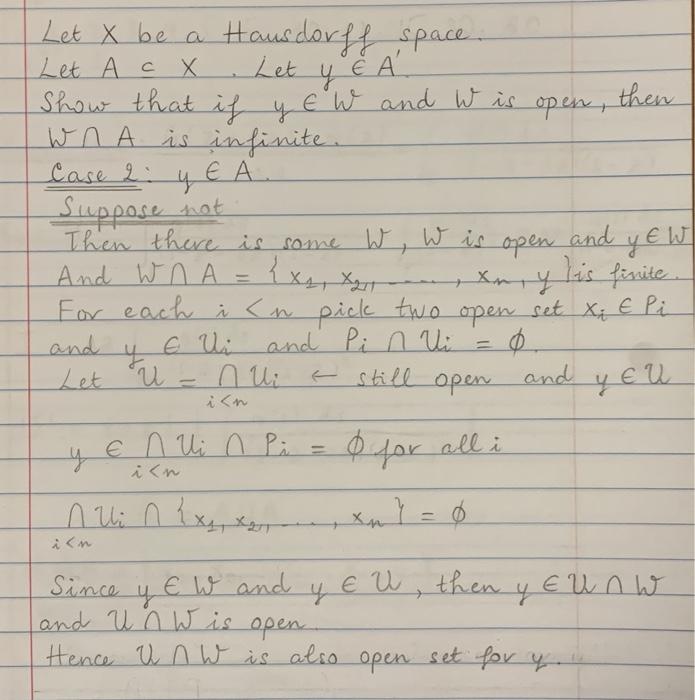 Let X be a Hausdorff space.
Let A ⊂ X . Let y ∈ A'.
Show that if y ∈ W and W is open, then
W ∩ A is infinite.
Case 2: y ∈ A.
Suppose not
Then there is some W, W is open and y ∈ W
And W ∩ A = {x₁, x₂, ..... , xₙ, y} is finite.
For each i < n pick two open set xᵢ ∈ Pi
and y ∈ Ui and Pi ∩ Ui = ∅.
Let U = ∩ Ui ← still open and y ∈ U
i<n
y ∈ ∩ Ui ∩ Pi = ∅ for all i
i<n
∩ Ui ∩ {x₁, x₂, ...., xₙ} = ∅
i<n
Since y ∈ W and y ∈ U, then y ∈ U ∩ W
and U ∩ W is open.
Hence U ∩ W is also open set for y.